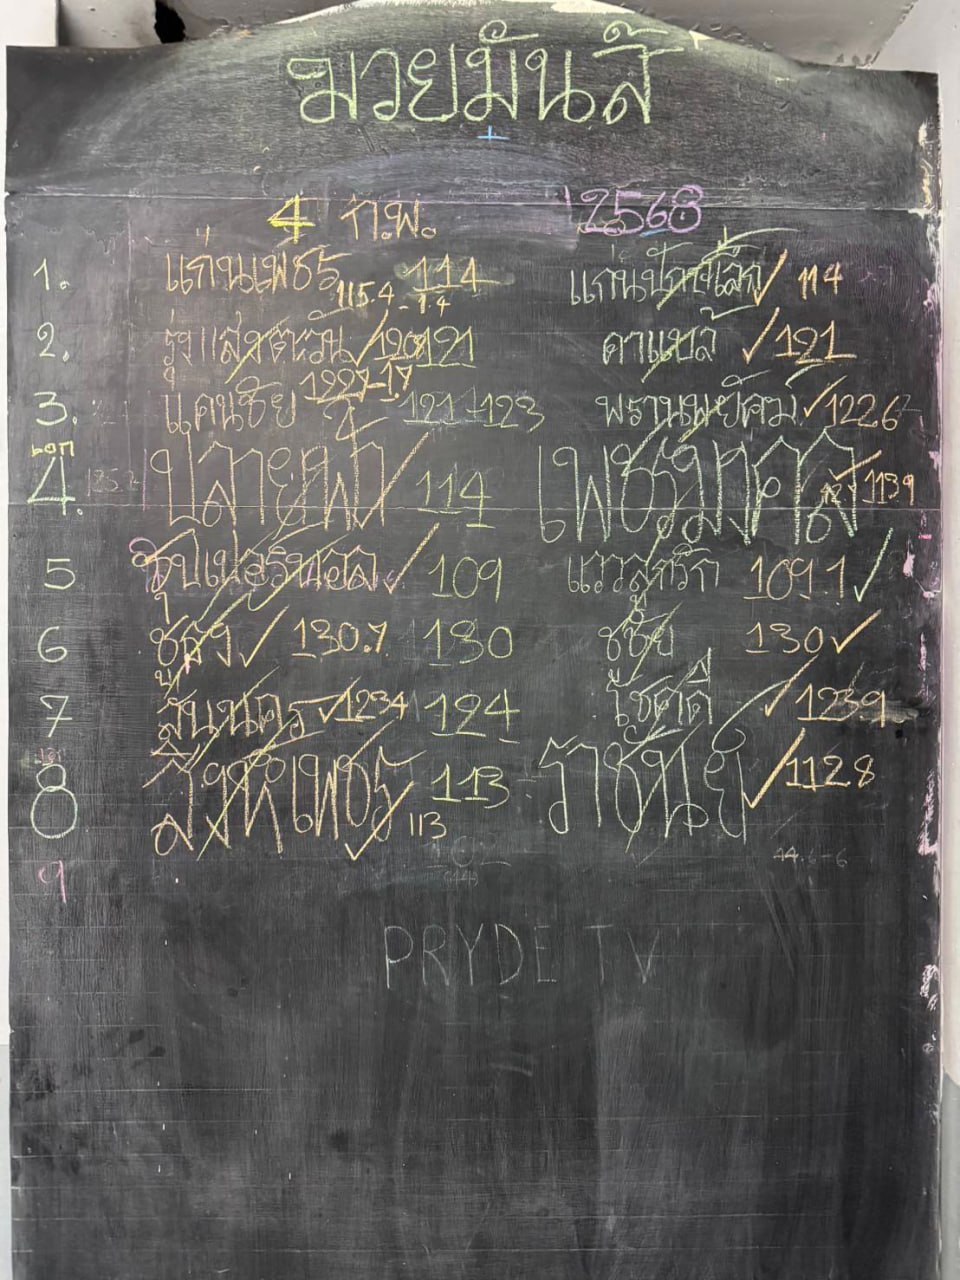 มวยมันส์
4 ก.พ. 2568
1. แก่นเพชร 114 แก่นปักจ์เล็ก ✓ 114
115.4 - 1.4
2. รุ่งแสงตะวัน ✓ 120.9 121 คาแบล้ ✓ 121
3. แดนชัย 122.7 - 1.7 121-123 พรานพยัคฆ์ ✓ 122.6
เอก
4. ปลายฟ้า ✓ 114 เพชรมงคล ✓ 113.9
5 ซุปเปอร์บอล ✓ 109 109.1 ✓
6 ชูแสง ✓ 130.7 130 ชูชัย 130 ✓
7 สุนนคร ✓ 123.4 124 โชคดี ✓ 123.9
8 สิงห์เพชร ✓ 113 113 ราชันย์ ✓ 112.8
44.6-6
9
PRYDE TV